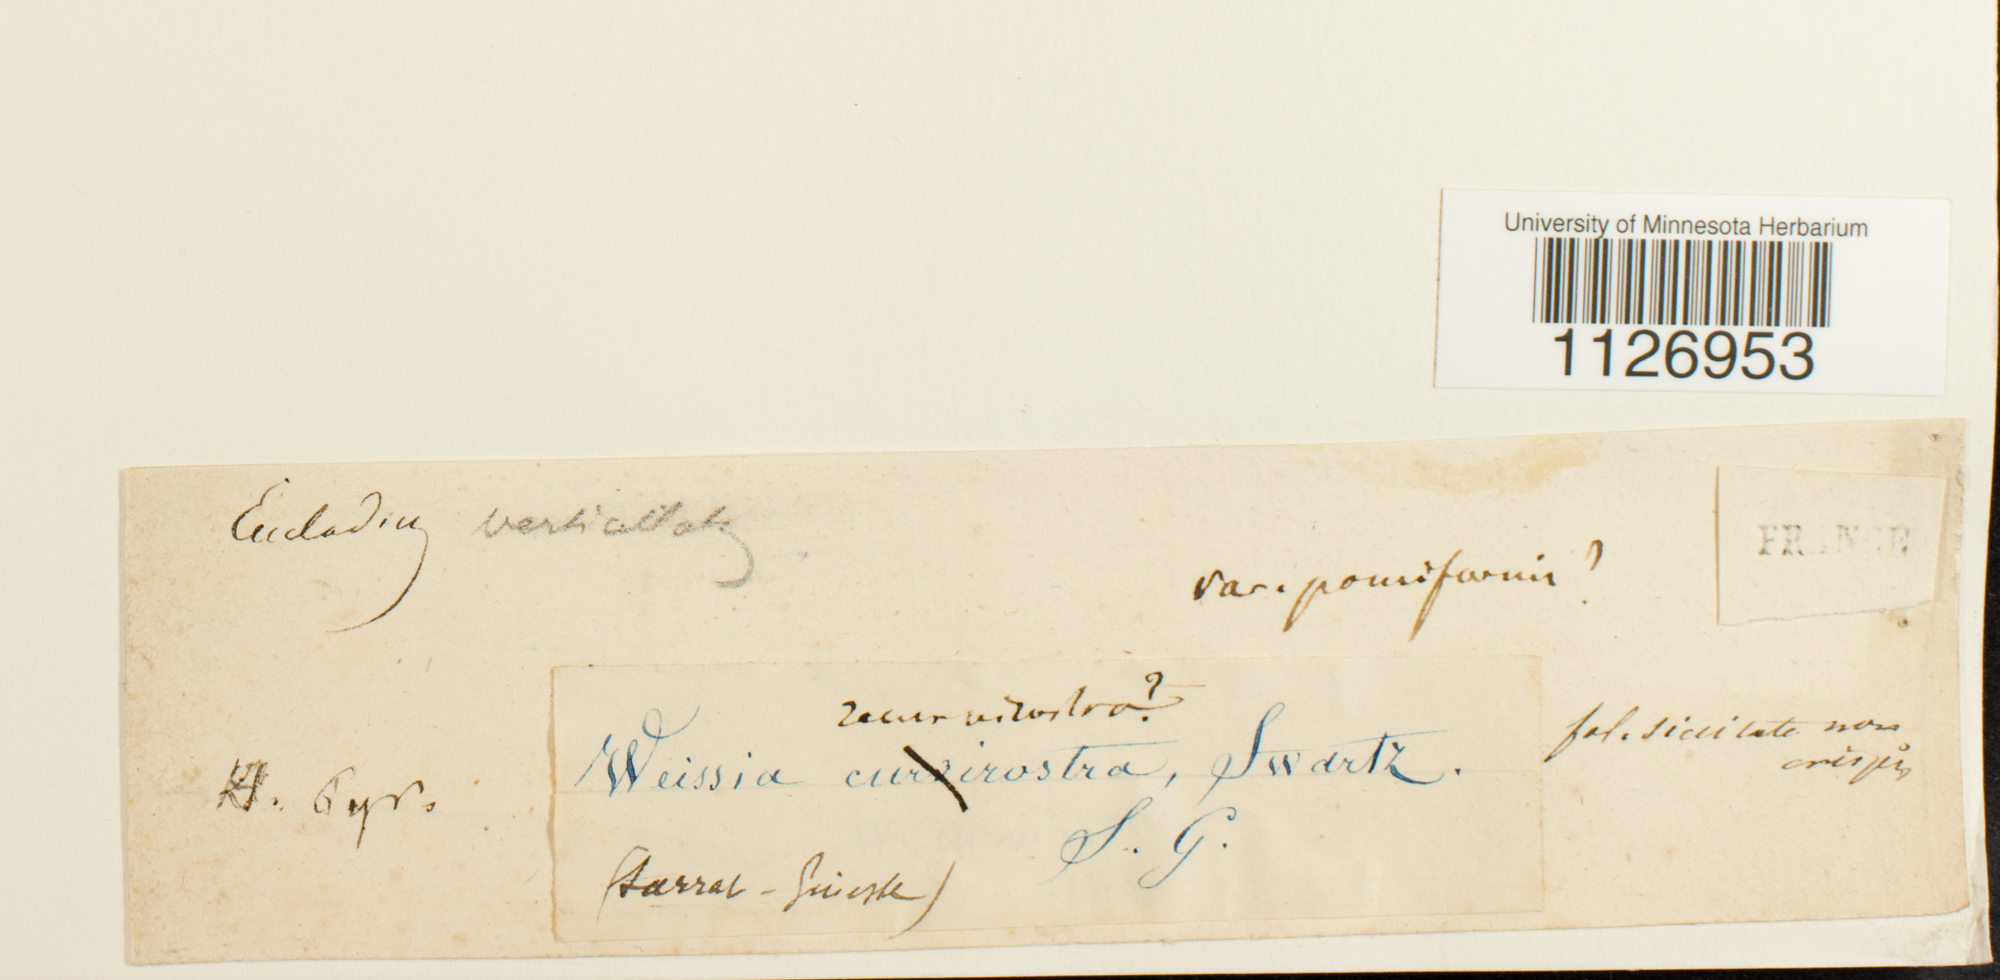 University of Minnesota Herbarium
1126953
Eucladium verticillatum
var. pomiformis?
FRANCE
recurvirostra?
Weissia curvirostra, Swartz.
S. G.
fol. siccitate non
crispis
H. Pyr.